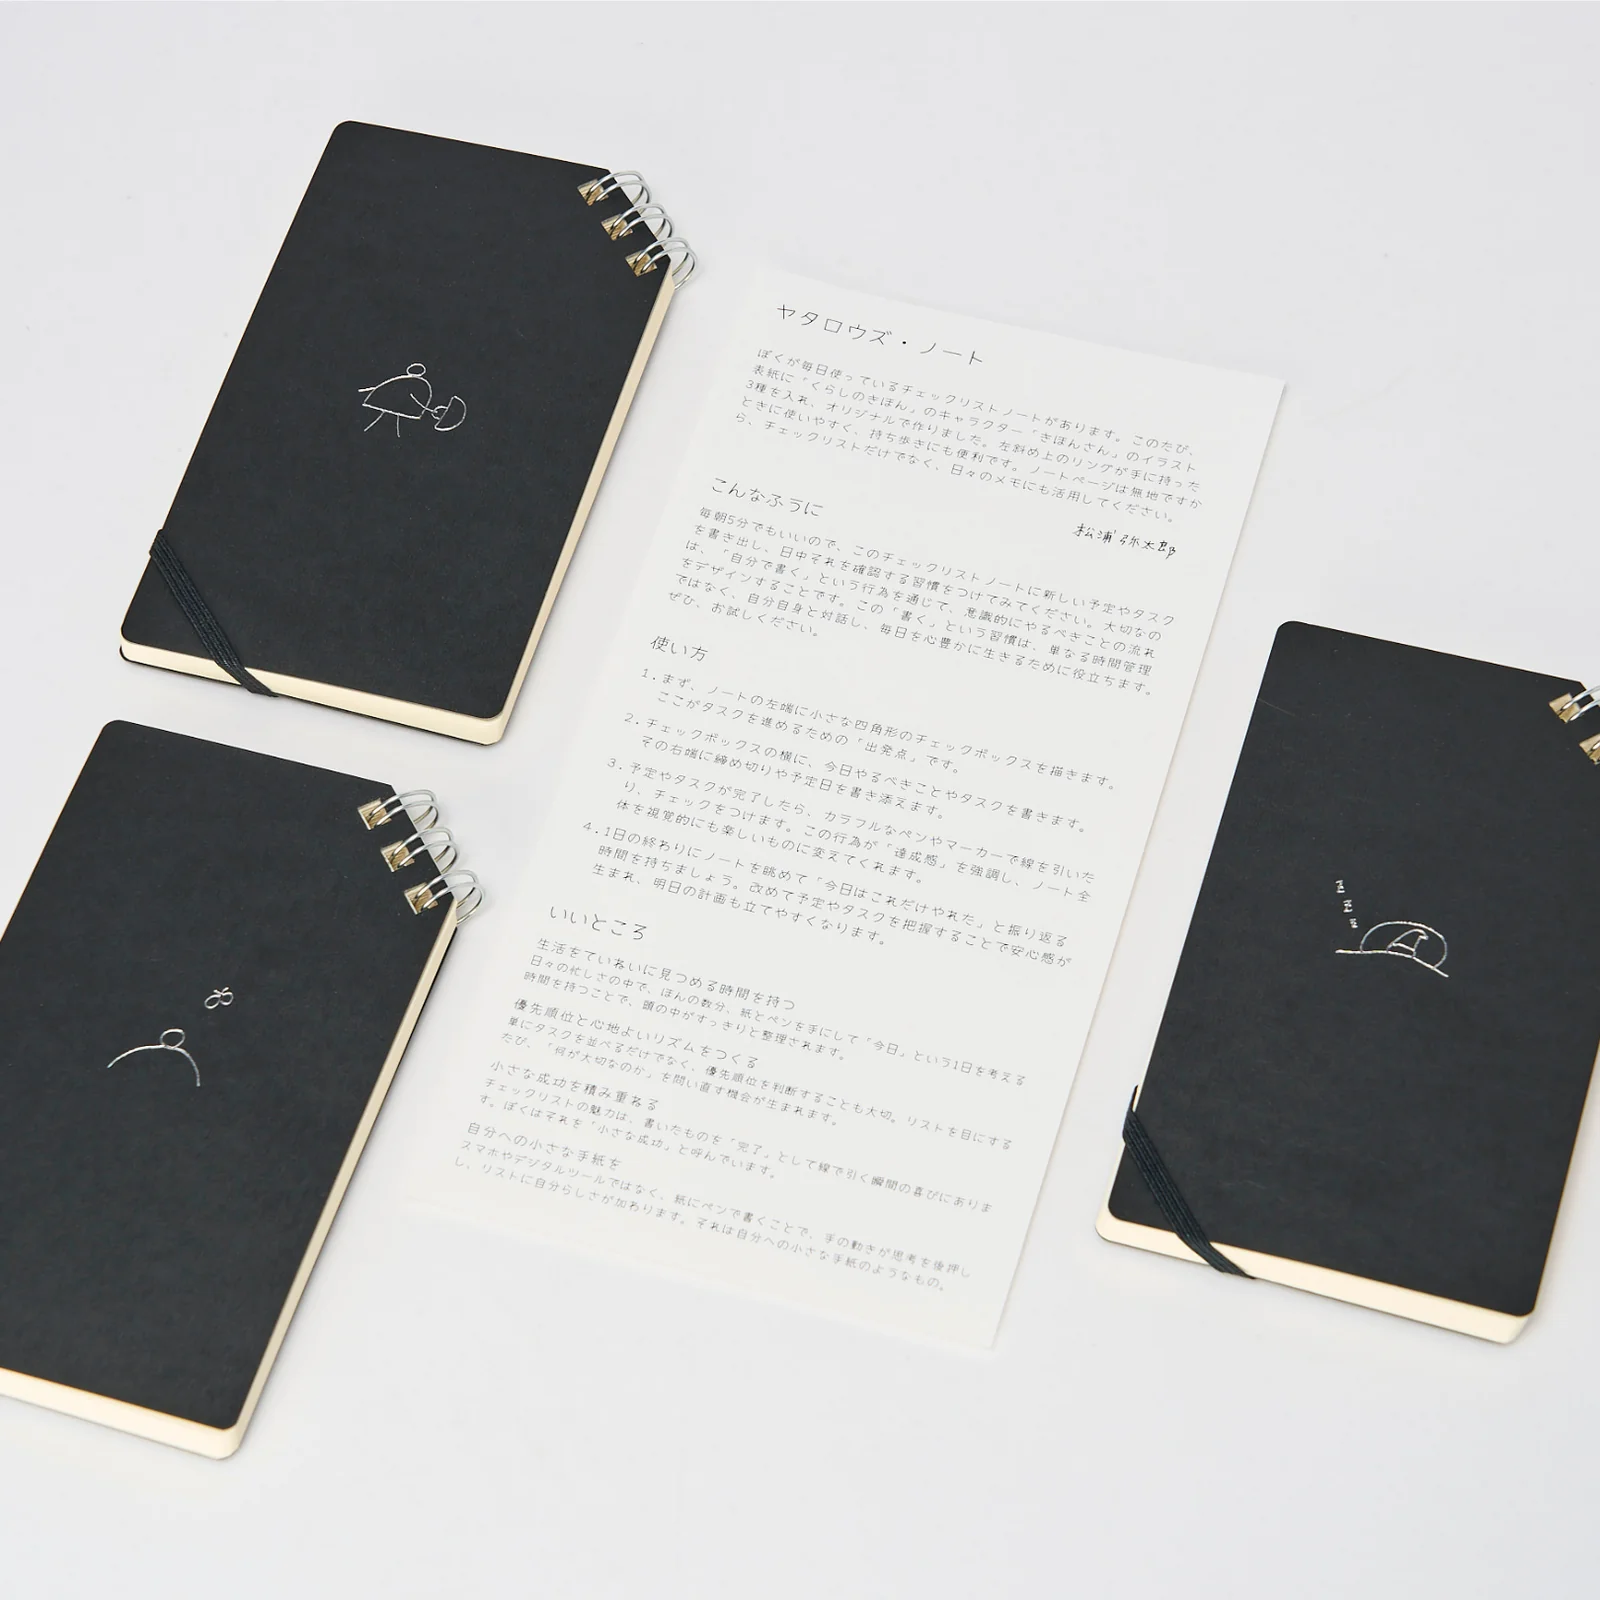 ヤタロウズ・ノート
ぼくが毎日使っているチェックリストノートがあります。このたび、
表紙に「くらしのきほん」のキャラクター「きほんさん」のイラスト
3種を入れ、オリジナルで作りました。左斜め上のリングが手に持った
ときに使いやすく、持ち歩きにも便利です。ノートページは無地ですか
ら、チェックリストだけでなく、日々のメモにも活用してください。
松浦弥太郎
こんなふうに
毎朝5分でもいいので、このチェックリストノートに新しい予定やタスク
を書き出し、日中それを確認する習慣をつけてみてください。大切なの
は、「自分で書く」という行為を通じて、意識的にやるべきことの流れ
をデザインすることです。この「書く」という習慣は、単なる時間管理
ではなく、自分自身と対話し、毎日を心豊かに生きるために役立ちます。
ぜひ、お試しください。
使い方
1.まず、ノートの左端に小さな四角形のチェックボックスを描きます。
ここがタスクを進めるための「出発点」です。
2.チェックボックスの横に、今日やるべきことやタスクを書きます。
その右端に締め切りや予定日を書き添えます。
3.予定やタスクが完了したら、カラフルなペンやマーカーで線を引いた
り、チェックをつけます。この行為が「達成感」を強調し、ノート全
体を視覚的にも楽しいものに変えてくれます。
4.1日の終わりにノートを眺めて「今日はこれだけやれた」と振り返る
時間を持ちましょう。改めて予定やタスクを把握することで安心感が
生まれ、明日の計画も立てやすくなります。
いいところ
生活をていねいに見つめる時間を持つ
日々の忙しさの中で、ほんの数分、紙とペンを手にして「今日」という1日を考える
時間を持つことで、頭の中がすっきりと整理されます。
優先順位と心地よいリズムをつくる
単にタスクを並べるだけでなく、優先順位を判断することも大切。リストを目にする
たび、「何が大切なのか」を問い直す機会が生まれます。
小さな成功を積み重ねる
チェックリストの魅力は、書いたものを「完了」として線で引く瞬間の喜びにありま
す。ぼくはそれを「小さな成功」と呼んでいます。
自分への小さな手紙を
スマホやデジタルツールではなく、紙にペンで書くことで、手の動きが思考を後押し
し、リストに自分らしさが加わります。それは自分への小さな手紙のようなもの。